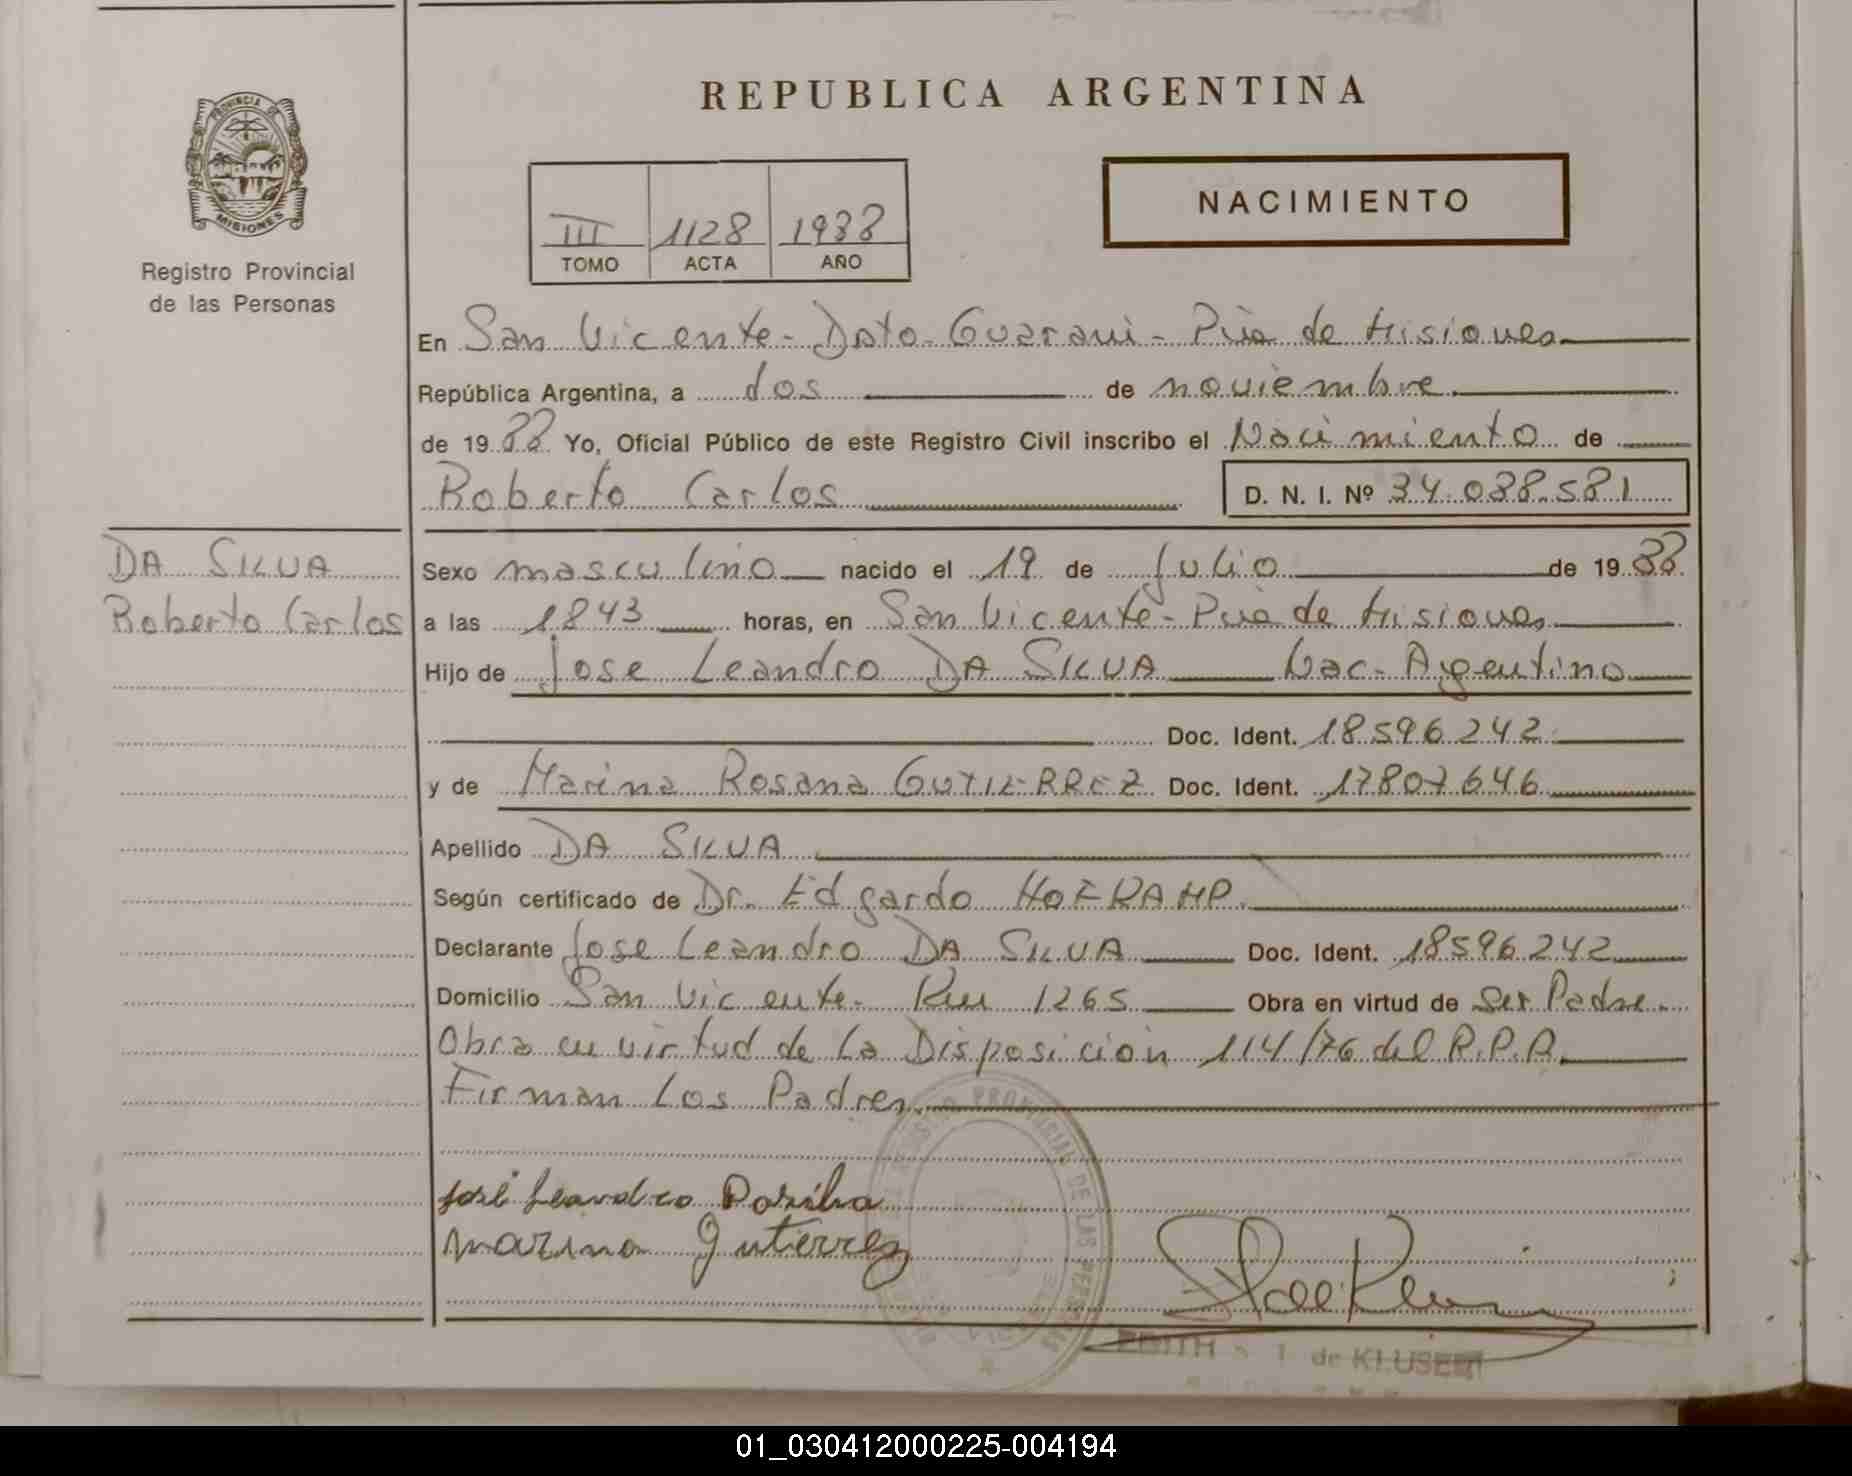 REPUBLICA ARGENTINA
PROVINCIA DE
MISIONES
Registro Provincial
de las Personas
III 1128 1988
TOMO ACTA AÑO
NACIMIENTO
En San Vicente - Dpto - Guarani - Pcia de Misiones
República Argentina, a dos de noviembre
de 1988 Yo, Oficial Público de este Registro Civil inscribo el Nacimiento de
Roberto Carlos
D. N. I. Nº 34.038.581
DA SILVA
Roberto Carlos
Sexo masculino nacido el 19 de Julio de 1988
a las 1843 horas, en San Vicente - Pcia de Misiones
Hijo de Jose Leandro DA SILVA Nac - Argentino
Doc. Ident. 18596242
y de Marina Rosana GUTIERREZ Doc. Ident. 17807646
Apellido DA SILVA
Según certificado de Dr. Edgardo
Declarante Jose Leandro DA SILVA Doc. Ident. 18596242
Domicilio San Vicente - Km 1265 Obra en virtud de Ser Padre.
Obra en virtud de La Disposición 114/76 del R.P.P.
Firman Los Padres.
REGISTRO PROVINCIAL DE LAS PERSONAS
José Leandro Dasilva
Marina Gutierrez
EDITH de KLUSENER
01_030412000225-004194